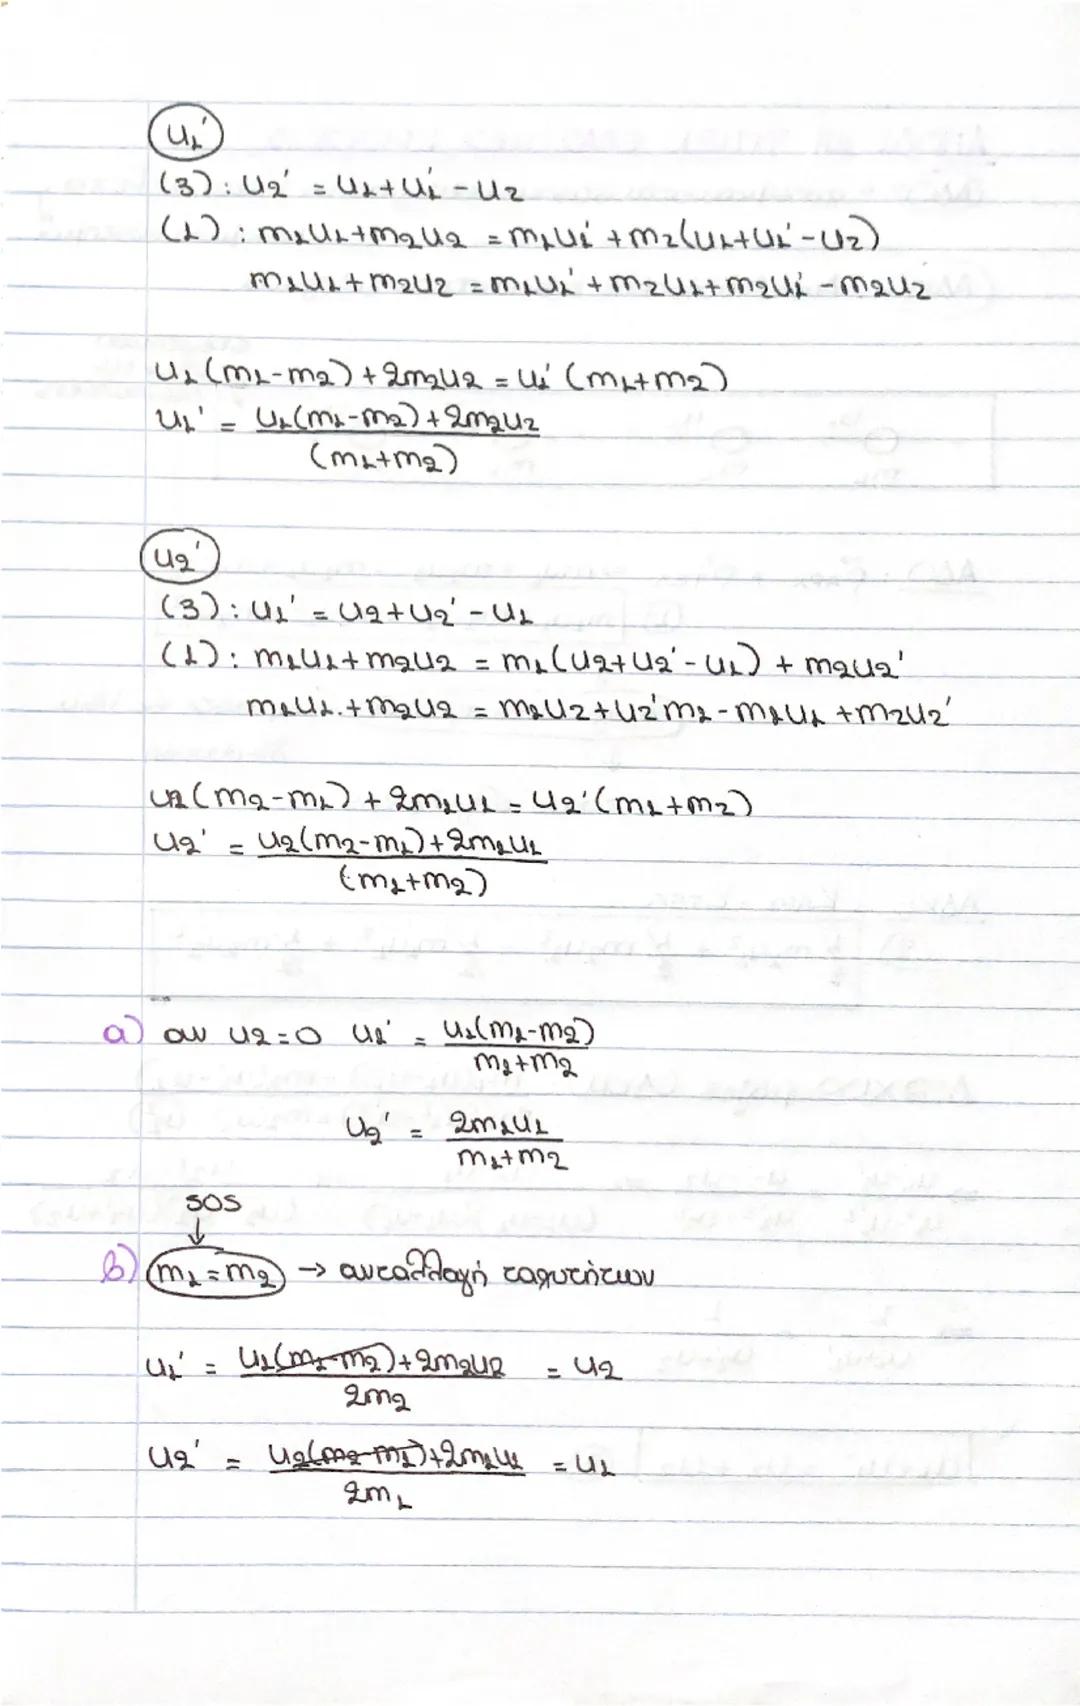 u₁'
(3): u₂' = u₁+u₁'-u₂
(1): m₁u₁+m₂u₂ = m₁u₁' + m₂(u₁+u₁'-u₂)
m₁u₁+m₂u₂ = m₁u₁' + m₂u₁+m₂u₁' - m₂u₂
u₁(m₁-m₂) + 2m₂u₂ = u₁' (m₁+m₂)
u₁' = u₁(m₁-m₂)+2m₂u₂
(m₁+m₂)
u₂'
(3): u₁' = u₂+u₂' - u₁
(1): m₁u₁+m₂u₂ = m₁(u₂+u₂'-u₁) + m₂u₂'
m₁u₁.+m₂u₂ = m₁u₂+u₂'m₁-m₁u₁ +m₂u₂'
u₂(m₂-m₁) + 2m₁u₁ = u₂'(m₁+m₂)
u₂' = u₂(m₂-m₁)+2m₁u₁
(m₁+m₂)
a) αν u₂=0 u₁' = u₁(m₁-m₂)
m₁+m₂
u₂' = 2m₁u₁
m₁+m₂
SOS
↓
b) m₁=m₂ → ανταλλαγή ταχυτήτων
u₁' = u₁(m₁-m₂)+2m₂u₂ = u₂
2m₂
u₂' = u₂(m₂-m₁)+2m₁u₁ = u₁
2m₁